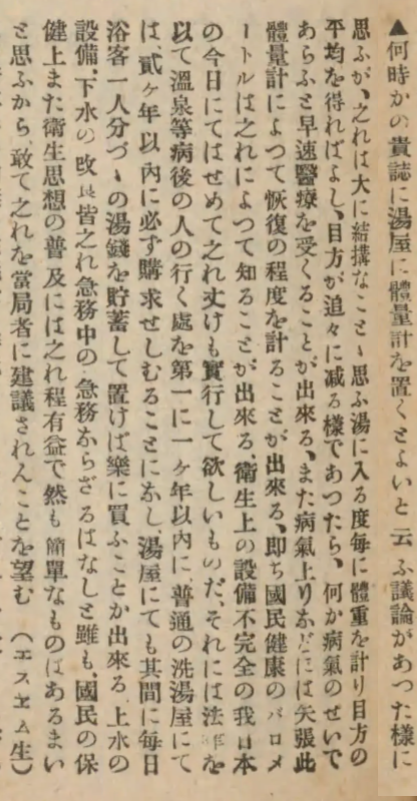 ▲何時かの貴誌に湯屋に體量計を置くとよいと云ふ議論があつた樣に
思ふが、之れは大に結搆なことゝ思ふ湯に入る度每に體重を計り目方の
平均を得ればよし、目方が追々に减る樣であつたら、何か病氣のせいで
あらふと早速醫療を受くることが出來る、また病氣上りなどには矢張此
體量計によつて恢復の程度を計ることが出來る、卽ち國民健康のバロメ
ートルは之れによつて知ることが出來る、衞生上の設備不完全の我日本
の今日にてはせめて之れ丈けも實行して欲しいものだ、それには法律を
以て溫泉等病後の人の行く處を第一に一ヶ年以內に、普通の洗湯屋にて
は、貳ヶ年以內に必ず購求せしむることになし、湯屋にても其間に每日
浴客一人分づゝの湯錢を貯蓄して置けば樂に買ふことか出來る、上水の
設備、下水の改良皆之れ急務中の急務ならざるはなしと雖も、國民の保
健上また衞生思想の普及には之れ程有益で然も簡單なものはあるまい
と思ふから、敢て之れを當局者に建議されんことを望む　（エスエム生）